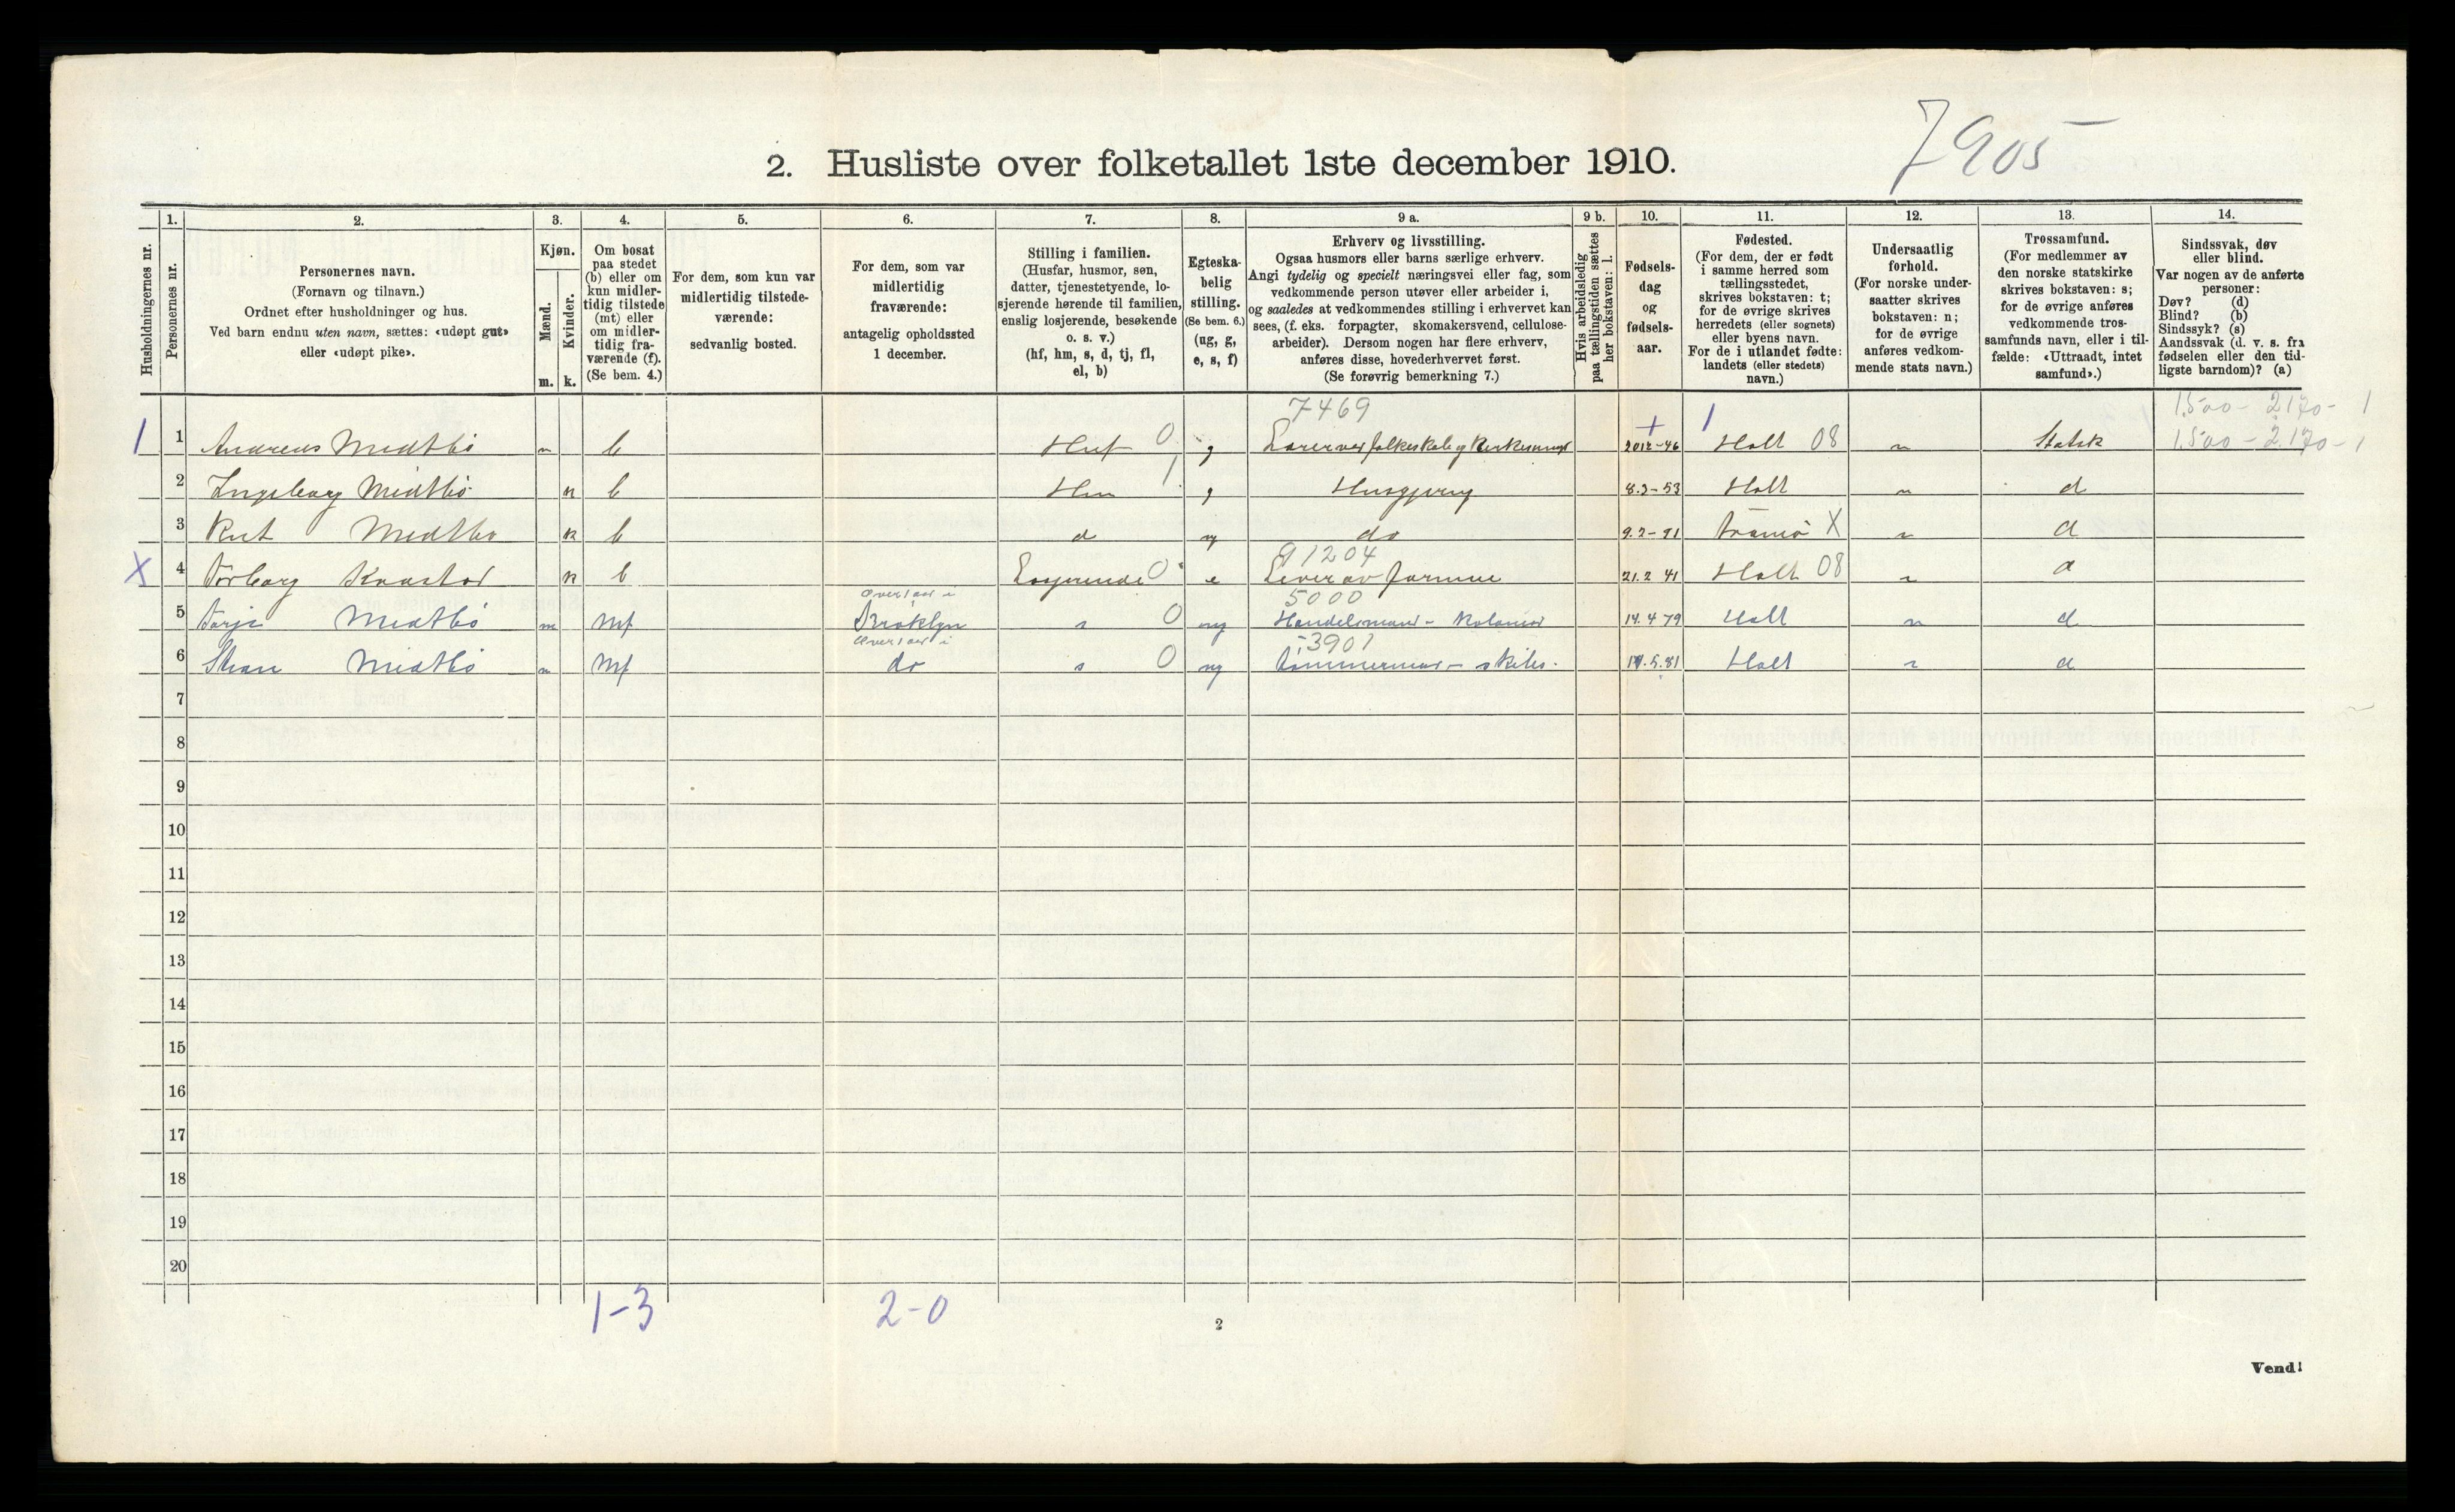 7905
2. Husliste over folketallet 1ste december 1910.
1. 2. 3. 4. 5. 6. 7. 8. 9 a. 9 b. 10. 11. 12. 13. 14.
Husholdningernes nr.
Personernes nr.
Personernes navn.
(Fornavn og tilnavn.)
Ordnet efter husholdninger og hus.
Ved barn endnu uten navn, sættes: «udøpt gut»
eller «udøpt pike».
Kjøn.
Mænd.
Kvinder.
m. k.
Om bosat
paa stedet
(b) eller om
kun midler-
tidig tilstede
(mt) eller
om midler-
tidig fra-
værende (f).
(Se bem. 4.)
For dem, som kun var
midlertidig tilstede-
værende:
sedvanlig bosted.
For dem, som var
midlertidig
fraværende:
antagelig opholdssted
1 december.
Stilling i familien.
(Husfar, husmor, søn,
datter, tjenestetyende, lo-
sjerende hørende til familien,
enslig losjerende, besøkende
o. s. v.)
(hf, hm, s, d, tj, fl,
el, b)
Egteska-
belig
stilling.
(Se bem. 6.)
(ug, g,
e, s, f)
Erhverv og livsstilling.
Ogsaa husmors eller barns særlige erhverv.
Angi tydelig og specielt næringsvei eller fag, som
vedkommende person utøver eller arbeider i,
og saaledes at vedkommendes stilling i erhvervet kan
sees, (f. eks. forpagter, skomakersvend, cellulose-
arbeider). Dersom nogen har flere erhverv,
anføres disse, hovederhvervet først.
(Se forøvrig bemerkning 7.)
Hvis arbeidsledig
paa tællingstiden sættes
her bokstaven: l.
Fødsels-
dag
og
fødsels-
aar.
Fødested.
(For dem, der er født
i samme herred som
tællingsstedet,
skrives bokstaven: t;
for de øvrige skrives
herredets (eller sognets)
eller byens navn.
For de i utlandet fødte:
landets (eller stedets)
navn.)
Undersaatlig
forhold.
(For norske under-
saatter skrives
bokstaven: n;
for de øvrige
anføres vedkom-
mende stats navn.)
Trossamfund.
(For medlemmer av
den norske statskirke
skrives bokstaven: s;
for de øvrige anføres
vedkommende tros-
samfunds navn, eller i til-
fælde: «Uttraadt, intet
samfund».)
Sindssvak, døv
eller blind.
Var nogen av de anførte
personer:
Døv? (d)
Blind? (b)
Sindssyk? (s)
Aandssvak (d. v. s. fra
fødselen eller den tid-
ligste barndom)? (a)
7469 1500 - 2170 - 1
1 1 Andreas Midtbö m b Huf 0 g Lærer ved folkeskole og Kirkesanger 20 12-46 Holt 08 n Statsk 1500 - 2170 - 1
2 Ingeborg Midtbö k b Hm 1 g Husgjerning 8.3-53 Holt n d
3 Rut Midtbö k b d ug do 9.2-91 Tromö X n d
91204
X 4 Torborg k b Losjerende 0 e Lever av formue 21.2 41 Holt 08 n d
5000
5 Tarje Midtbö m mf Broklyn s 0 ug Handelsmand - Kolonial 14.4 79 Holt n d
3901
6 Midtbö m mf do s 0 ug Tömmermand - 5.81 Holt n d
7
8
9
10
11
12
13
14
15
16
17
18
19
20
1-3 2-0
2
Vend!